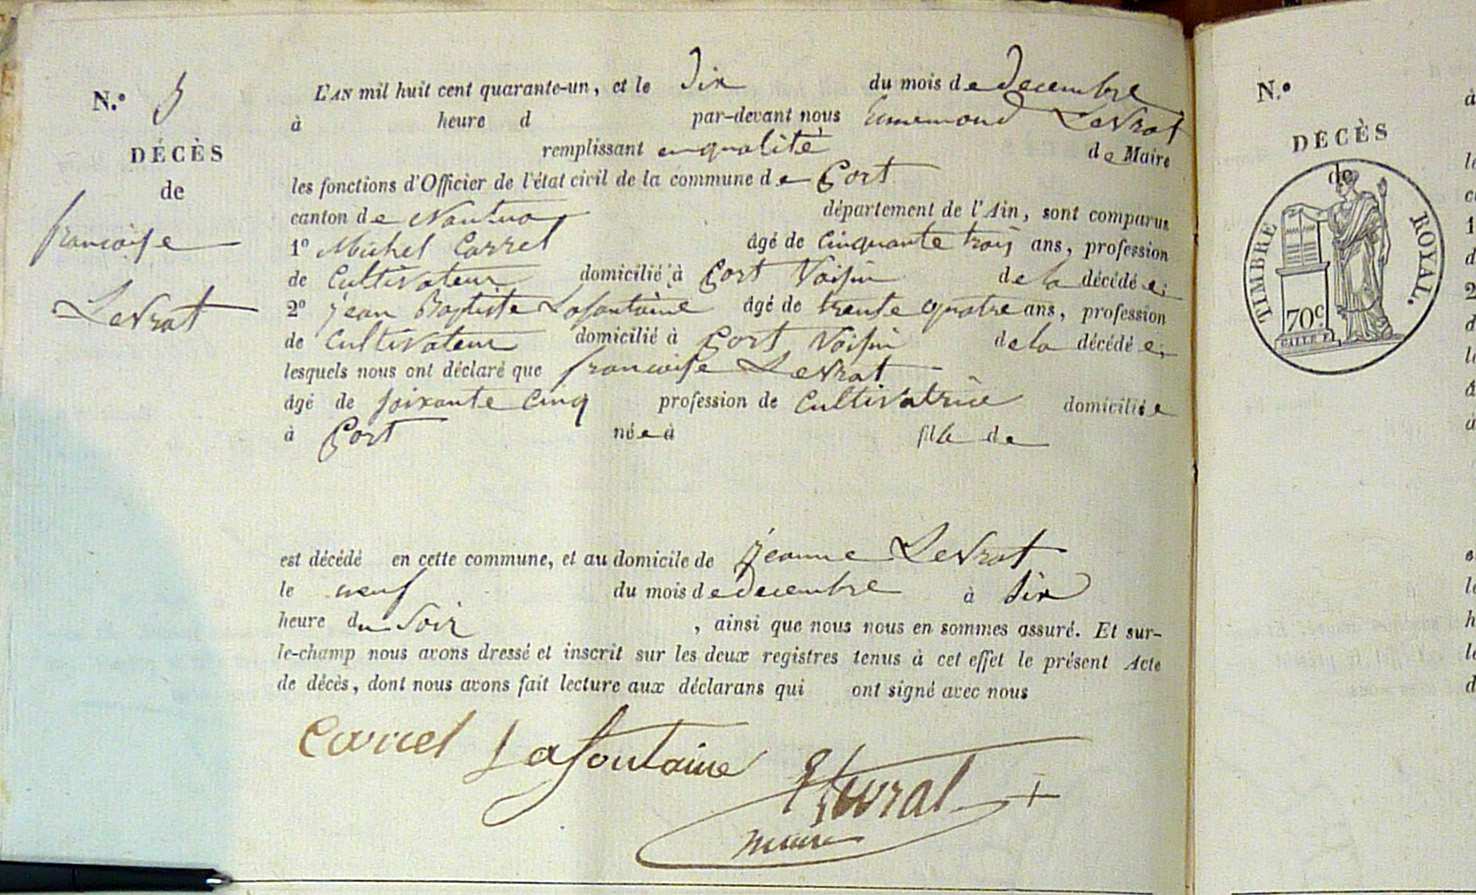 N.º 5
DÉCÈS
de
françoise
Levrat
L'AN mil huit cent quarante-un, et le Dix du mois de decembre
à heure d par-devant nous Ennemond Levrat
remplissant en qualité de Maire
les fonctions d'Officier de l'état civil de la commune de Port
canton de Nantua département de l'Ain, sont comparus
1º Michel Carrel âgé de cinquante trois ans, profession
de Cultivateur domicilié à Port Voisin de la décédée
2º jean Baptiste Lafontaine âgé de trente quatre ans, profession
de Cultivateur domicilié à Port Voisin de la décédée
lesquels nous ont déclaré que françoise Levrat
âgé de soixante cinq profession de Cultivatrice domiciliée
à Port née à fille de
est décédé en cette commune, et au domicile de jeanne Levrat
le neuf du mois de decembre à Six
heure du Soir, ainsi que nous nous en sommes assuré. Et sur-
le-champ nous avons dressé et inscrit sur les deux registres tenus à cet effet le présent Acte
de décès, dont nous avons fait lecture aux déclarans qui ont signé avec nous
Carrel Lafontaine Levrat
maire
N.º
DÉCÈS
de
TIMBRE ROYAL.
70c